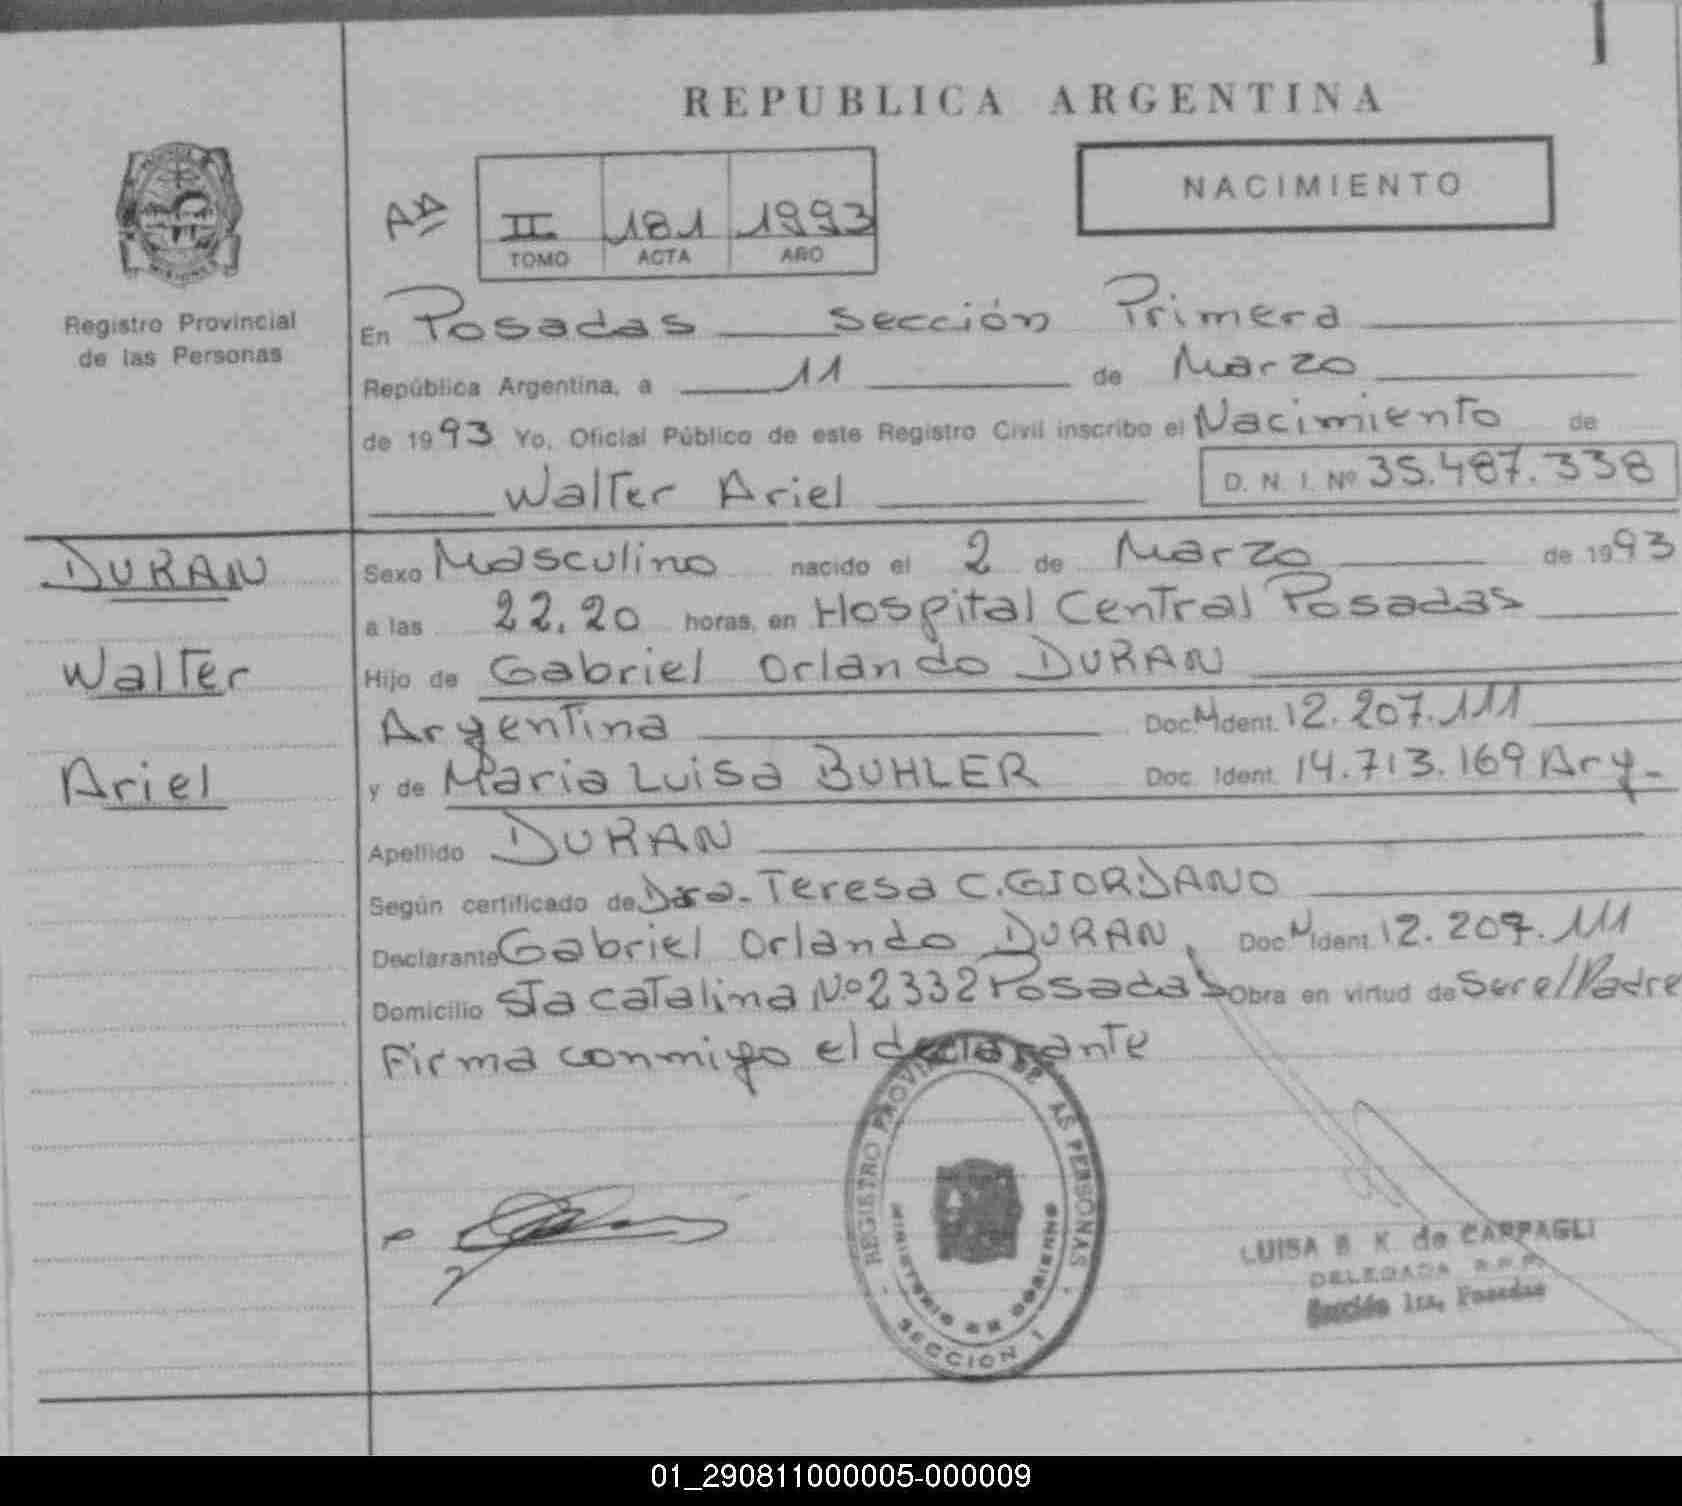 REPUBLICA ARGENTINA
NACIMIENTO
II 181 1993
TOMO ACTA AÑO
Registro Provincial
de las Personas
En Posadas Sección Primera
República Argentina, a 11 de Marzo
de 1993 Yo, Oficial Público de este Registro Civil inscribo el Nacimiento de
Walter Ariel D. N. I. Nº 35.487.338
DURAN
Walter
Ariel
Sexo Masculino nacido el 2 de Marzo de 1993
a las 22.20 horas, en Hospital Central Posadas
Hijo de Gabriel Orlando DURAN
Argentina Doc. M Ident. 12.207.111
y de Maria Luisa BUHLER Doc. Ident. 14.713.169 Arg.
Apellido DURAN
Según certificado de Dra. Teresa C. GIORDANO
Declarante Gabriel Orlando DURAN, Doc. M Ident. 12.207.111
Domicilio Sta Catalina Nº 2332 Posadas Obra en virtud de Ser el Padre
Firma conmigo el declarante
REGISTRO PROVINCIAL DE LAS PERSONAS
MINISTERIO DE GOBIERNO
SECCION 1
LUISA B K de CARPAGLI
DELEGADA R.P.P.
Sección 1ra, Posadas
01_290811000005-000009